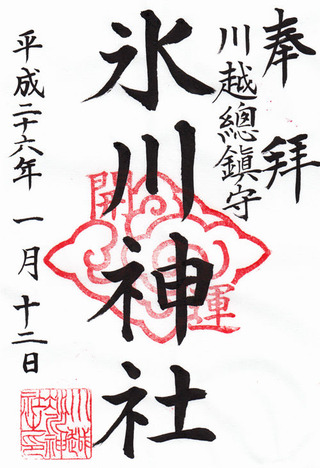 奉拝
川越總鎮守
氷川神社
開運
平成二十六年一月十二日
川越氷川神社之印